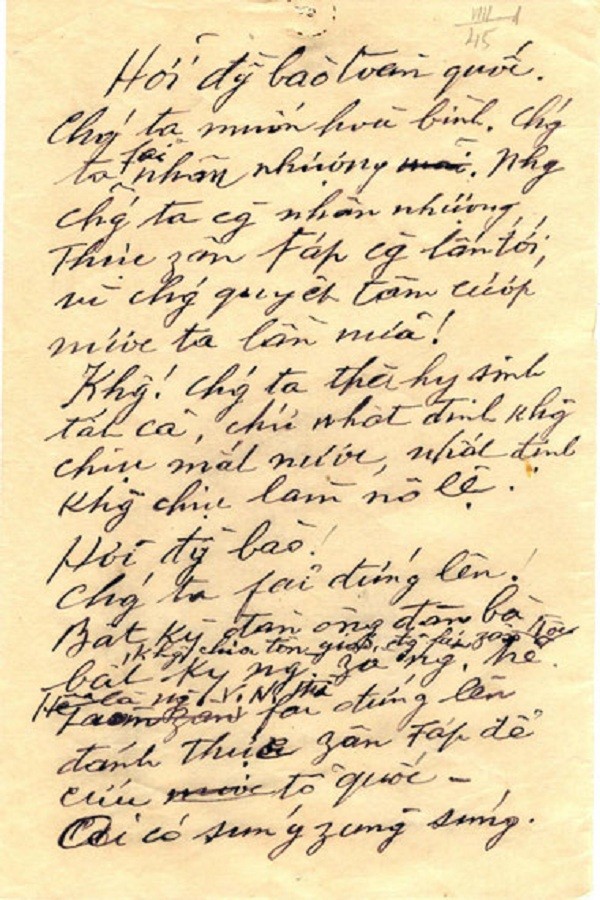 Hỡi đg̃ bào toàn quốc.
Chg' ta muốn hoà bình, chg'
ta fải nhân nhượng. Nhg
chg' ta cg̃ nhân nhượng,
Thực zân Fáp cg̃ lấn tới,
vì chg' quyết tâm cướp
nước ta lần nữa!
Khg! chg' ta thà hy sinh
tất cả, chứ nhất định khg
chịu mất nước, nhất định
khg chịu làm nô lệ.
Hỡi đg̃ bào!
Chg' ta fải đứng lên!
Bất kỳ đàn ông đàn bà
khg chia tôn giáo, đg̃ fái, zân tộc
bất kỳ ng. zà ng. trẻ.
Hễ là ng. V. N. thì
fải đứng lên
đánh thực zân Fáp để
cứu tổ quốc -
Ai có súng zùng súng.